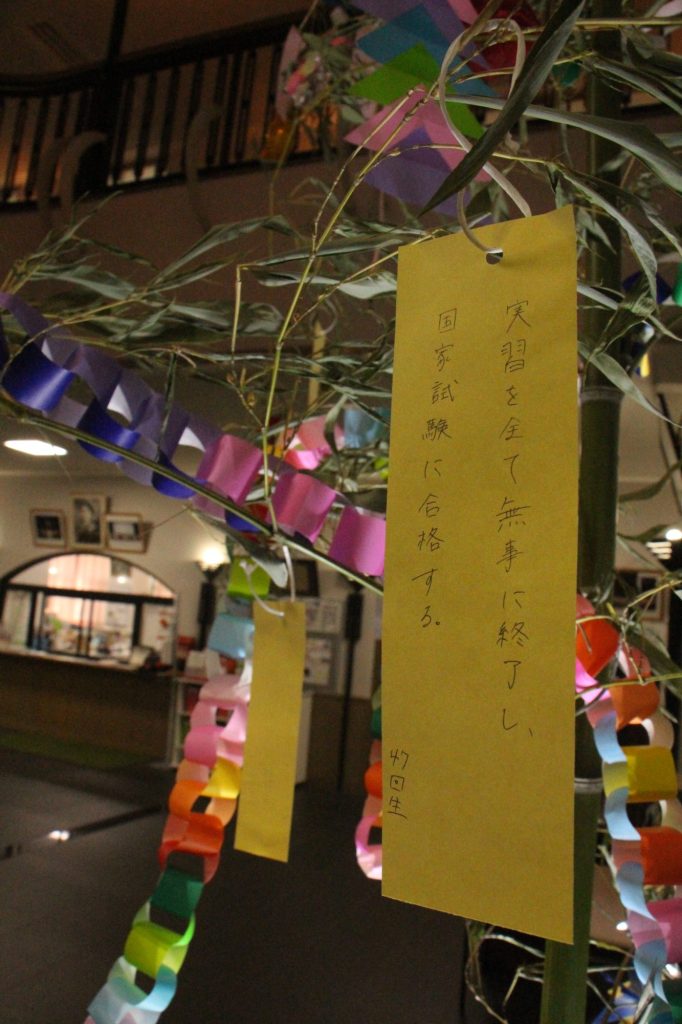 実習を全て無事に終了し、
国家試験に合格する。
47回生